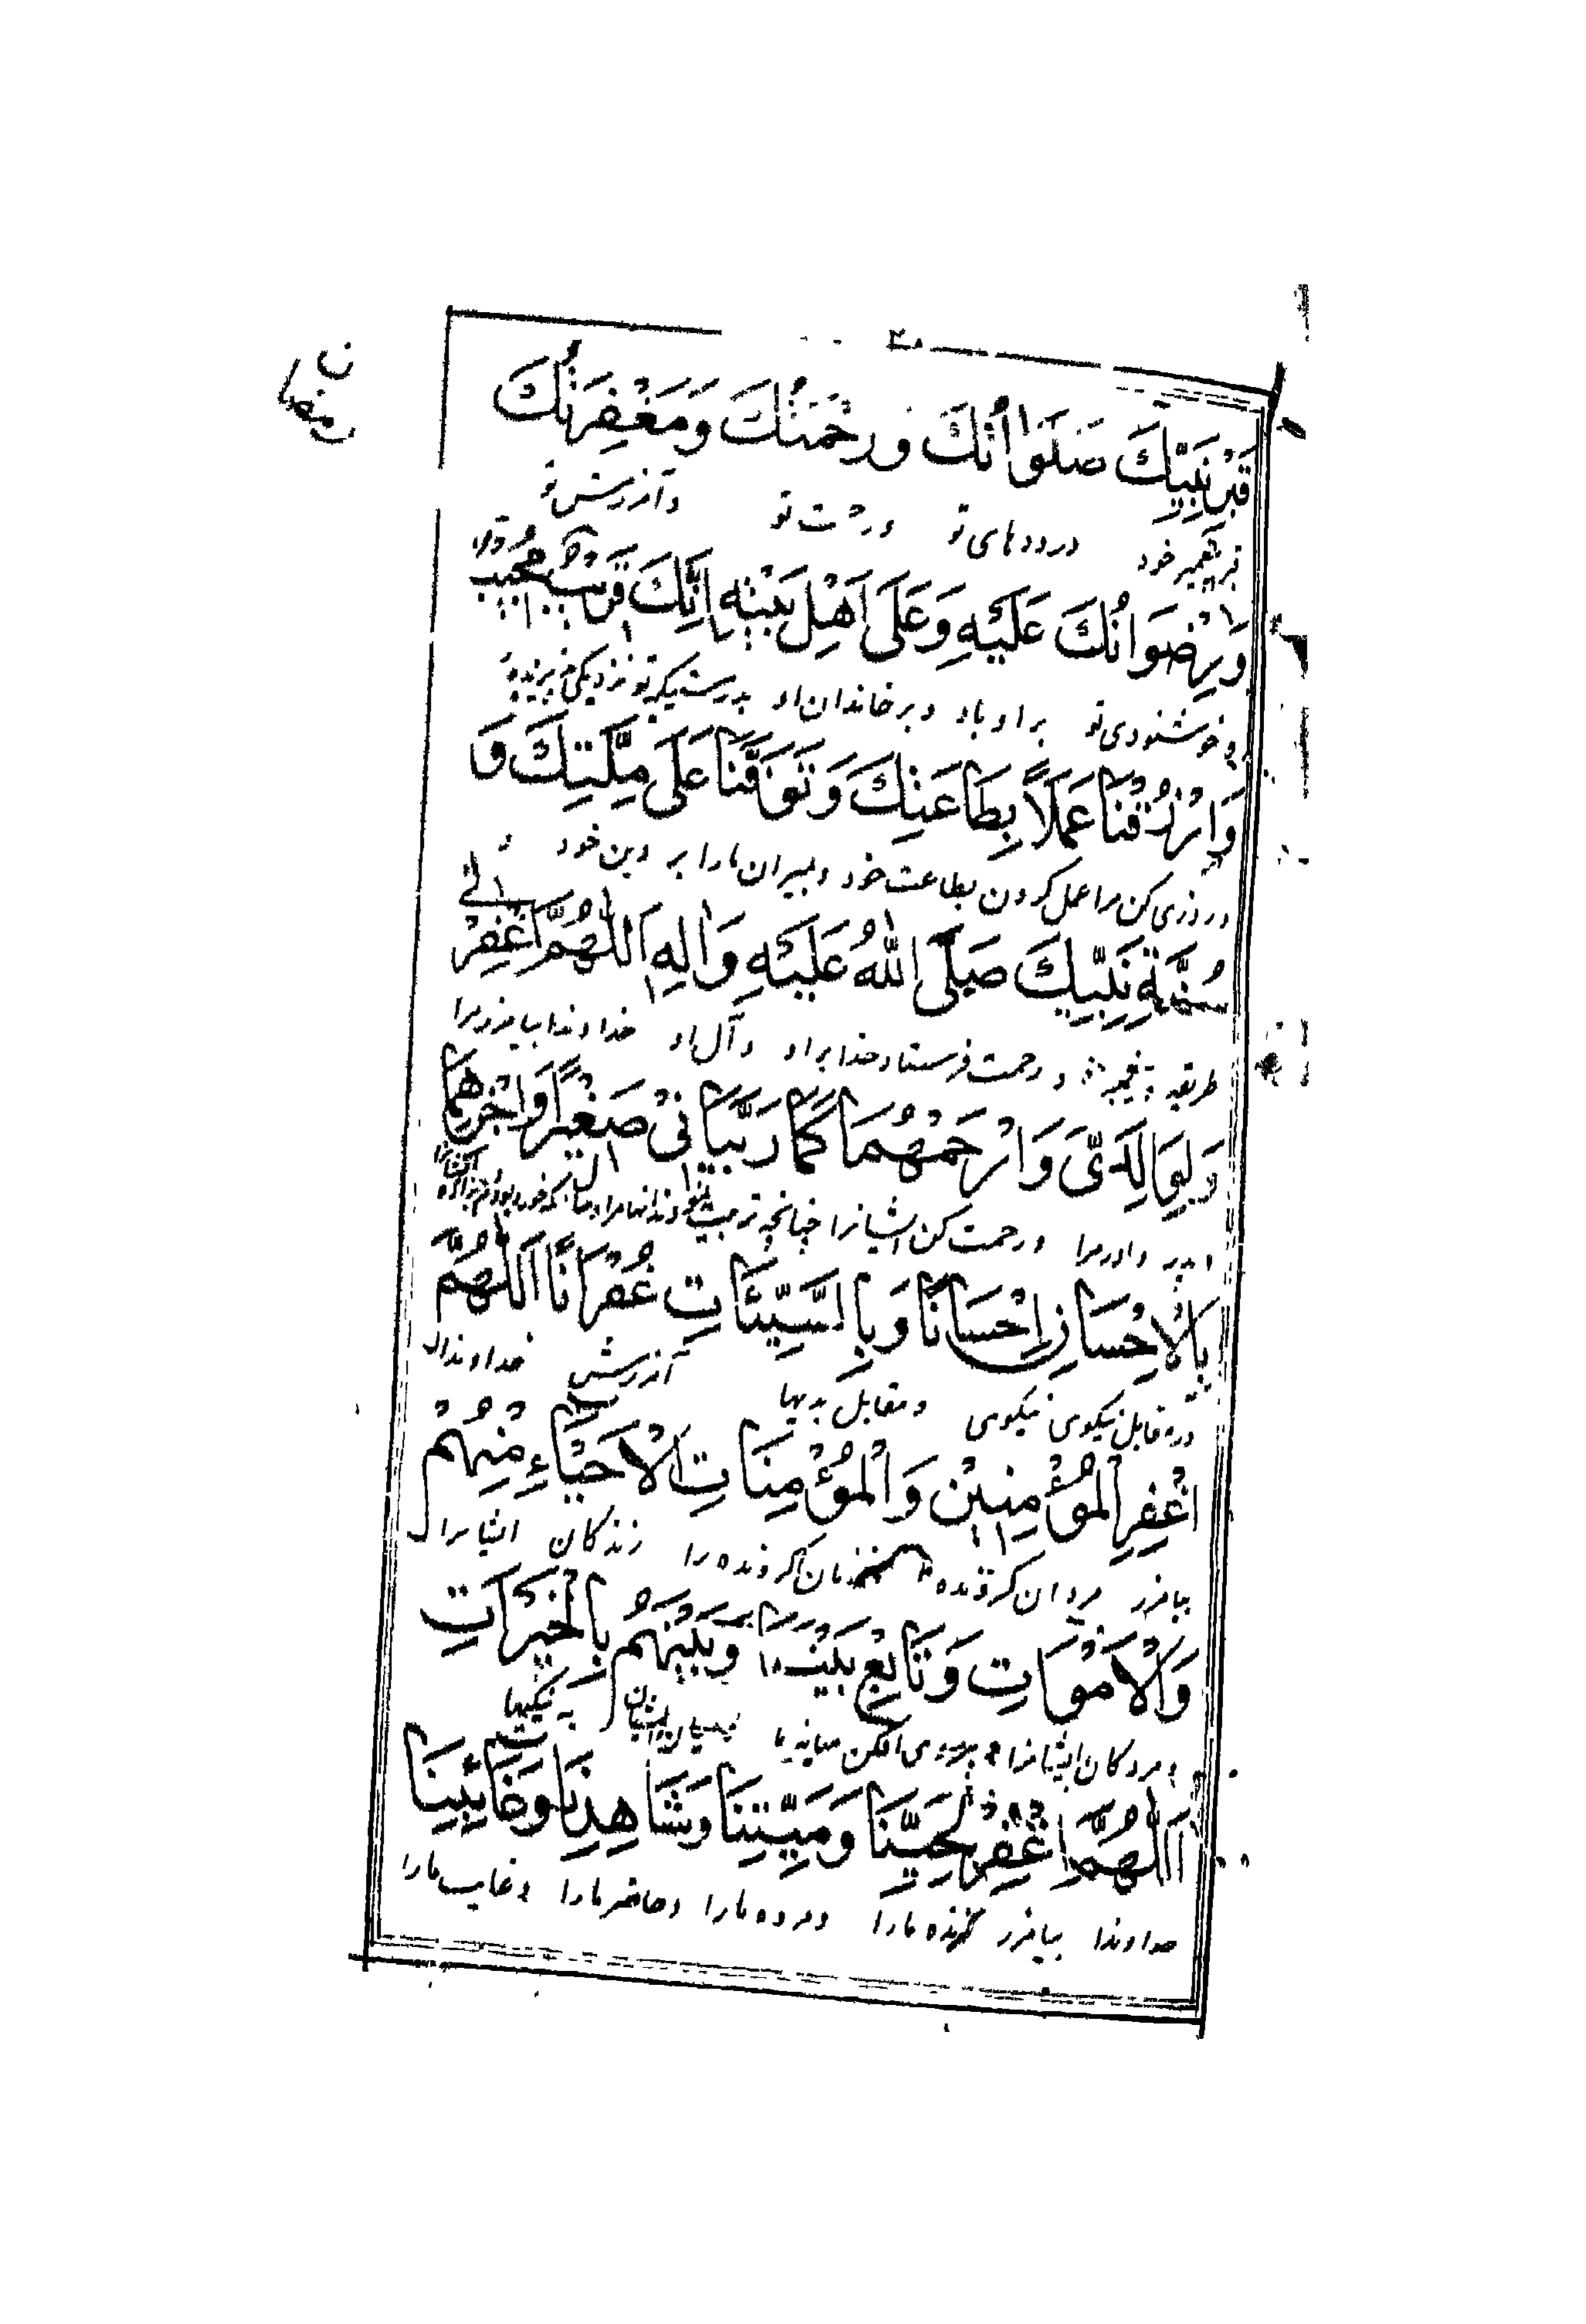 قَبْرِ نَبِيِّكَ صَلَوَاتُكَ وَرَحْمَتُكَ وَمَغْفِرَتُكَ
خود درودهای تو ورحمت تو وآمرزش تو
وَرِضْوَانُكَ عَلَيْهِ وَعَلَى اَهْلِ بَيْتِهِ اِنَّكَ قَرِيبٌ مُجِيبٌ
وخوشنودی تو براو باد وبر خاندان او بدرستیکه تو نزدیکی
وَارْزُقْنَا عَمَلاً بِطَاعَتِكَ وَتَوَفَّنَا عَلَى مِلَّتِكَ وَ
وروزی کن مرا عمل کردن بطاعت خود وبمیران مارا بر دین خود و
سُنَّةِ نَبِيِّكَ صَلَّى اللهُ عَلَيْهِ وَالِهِ اَللّهُمَّ اغْفِرْ لِي
طریقه ورحمت فرستاد خدا براو وآل او خداوندا بیامرز مرا
وَلِوَالِدَيَّ وَارْحَمْهُمَا كَمَا رَبَّيَانِي صَغِيرًا وَاجْزِهِمَا
وپدر ومادر مرا ورحمت کن ایشانرا چنانچه تربیت
بِالْاِحْسَانِ اِحْسَانًا وَبِالسَّيِّئَاتِ غُفْرَانًا اَللّهُمَّ
در مقابل نیکوی نیکوی ومقابل بدیها آمرزش خداوندا
اغْفِرِ لْمُؤْمِنِيْنَ وَالْمُؤْمِنَاتِ الْاَحْيَاءِ مِنْهُمْ
بیامرز مردان گرونده زنان گرونده را زندکان ایشانرا
وَالْاَمْوَاتِ وَتَابِعْ بَيْنَنَا وَبَيْنَهُمْ بِالْخَيْرَاتِ
ومردکان ایشانرا افکن میانه ما ومیان ایشان به نیکیها
اَللّهُمَّ اغْفِرْ لِحَيِّنَا وَمَيِّتِنَا وَشَاهِدِنَا وَغَائِبِنَا
خداوندا بیامرز زنده مارا ومرده مارا وحاضر مارا وغایب مارا
رمضان